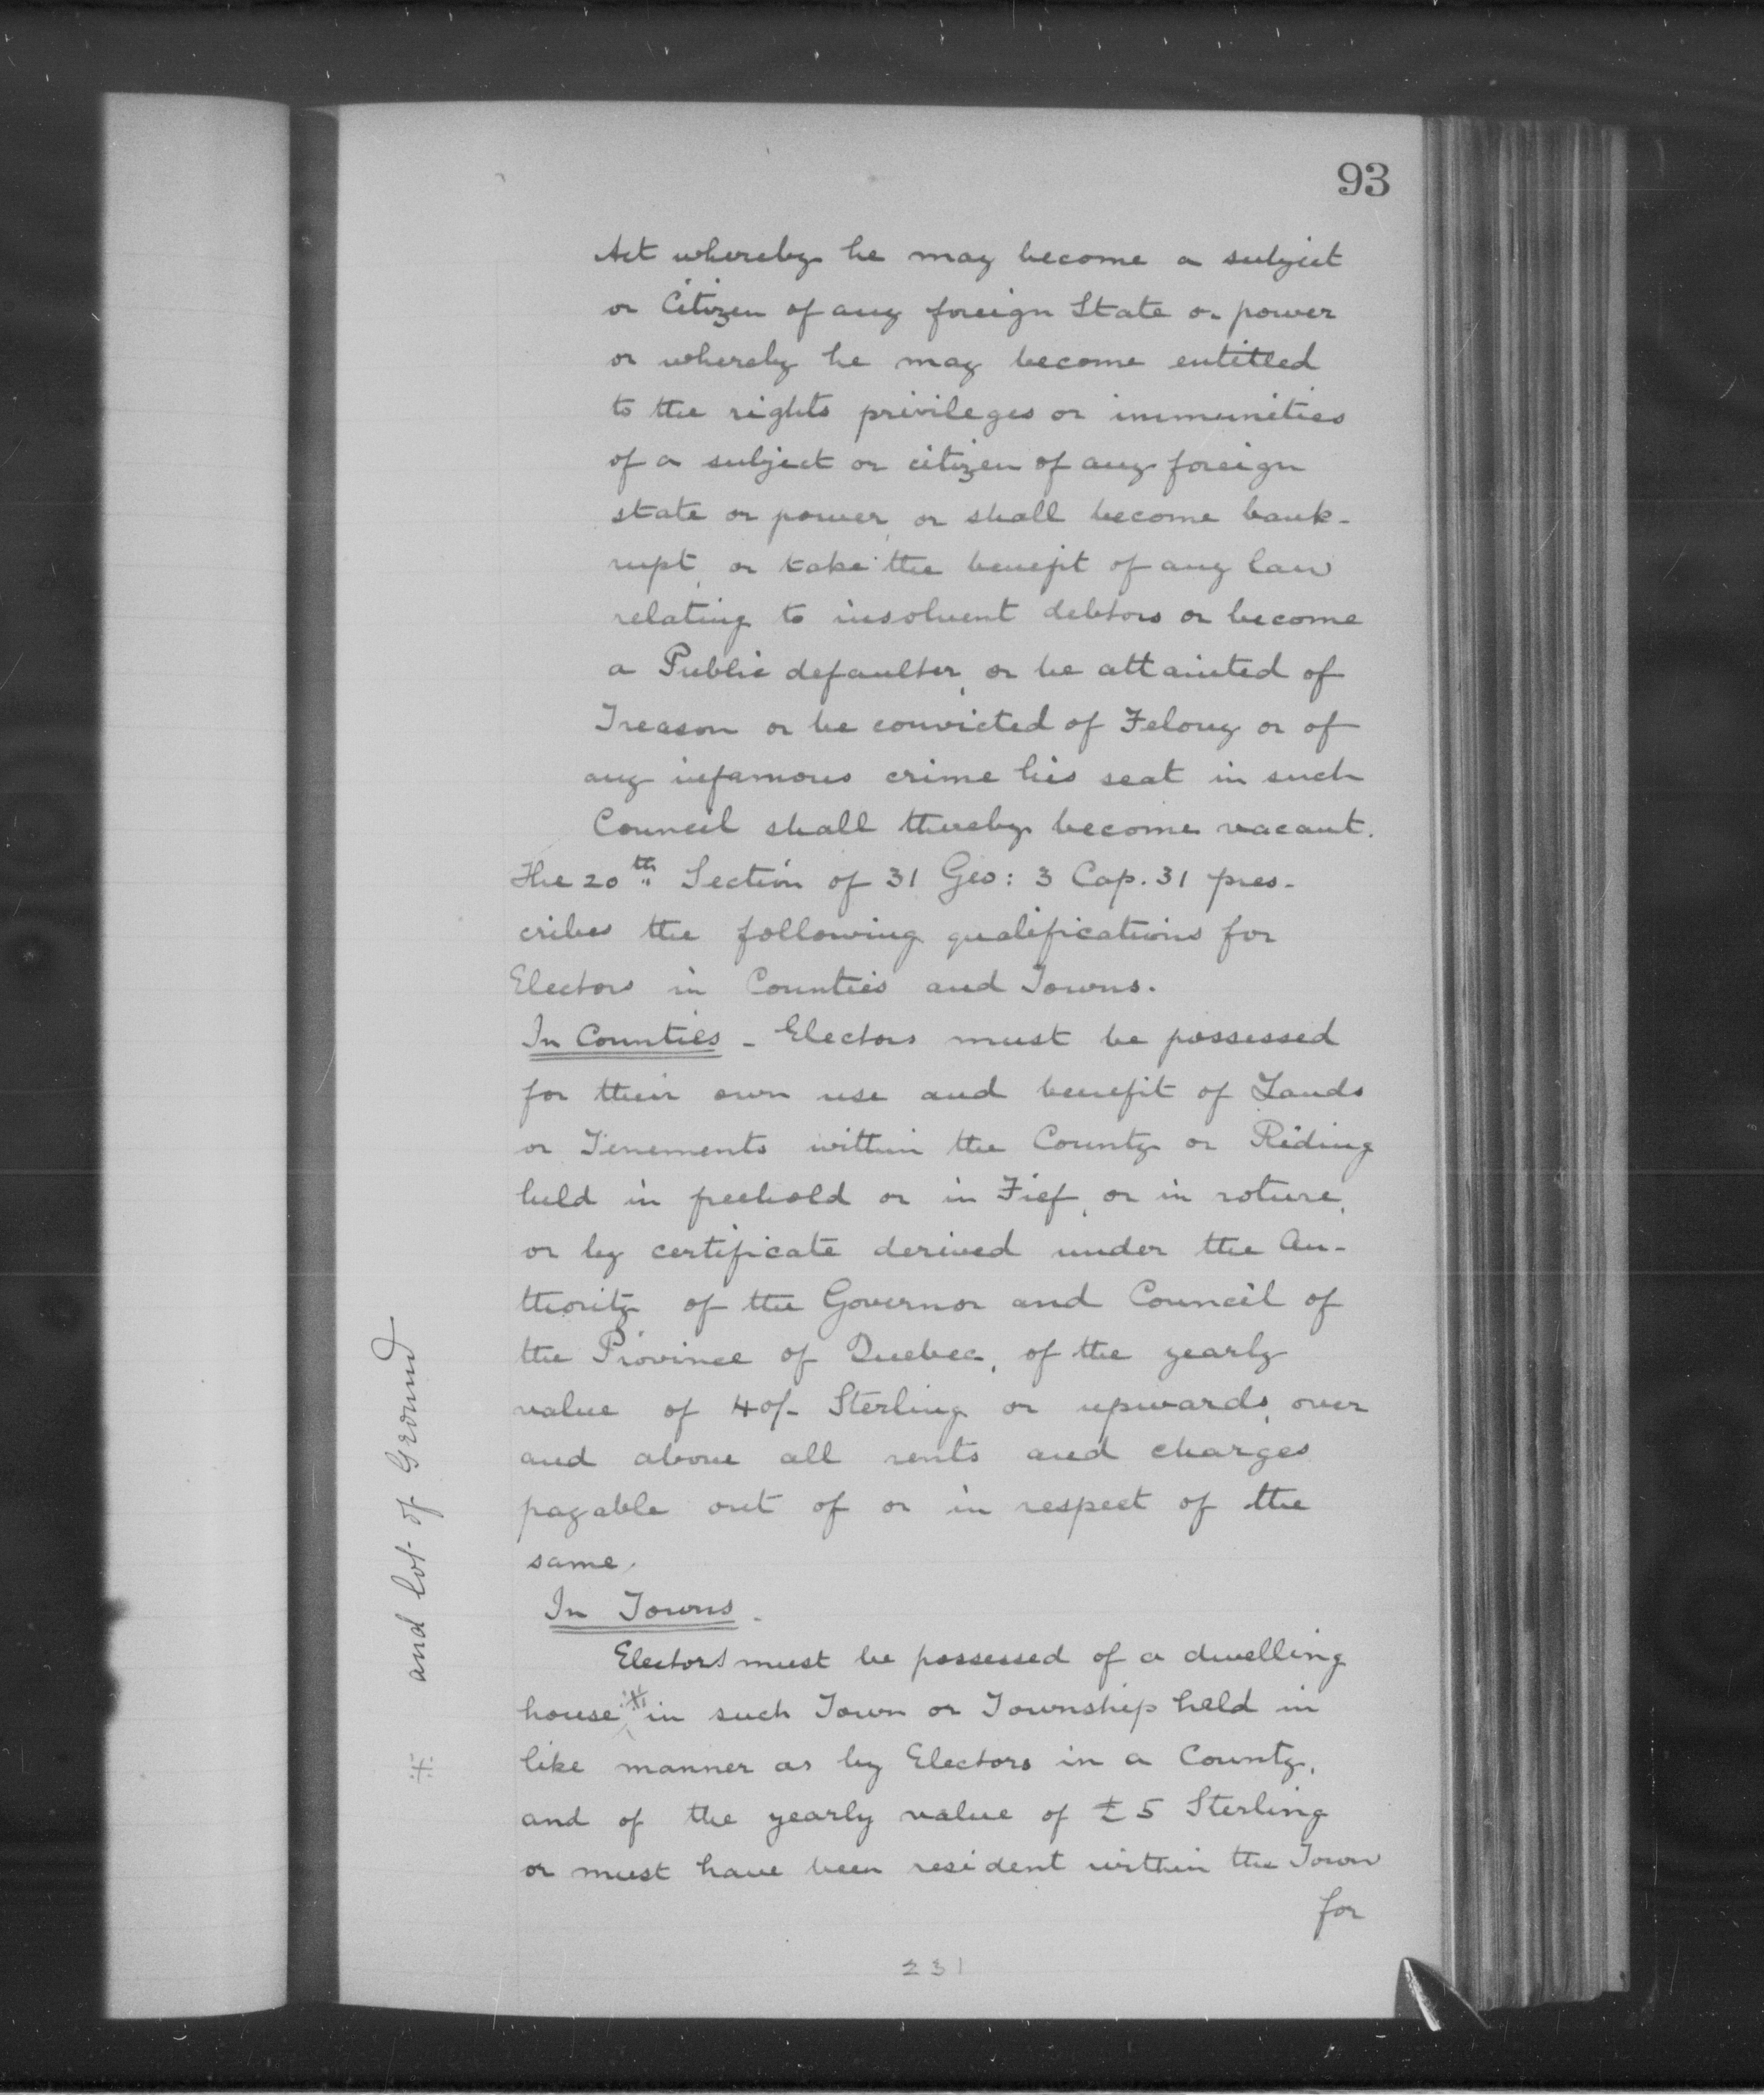 93
Act whereby he may become a subject
or Citizen of any foreign State or power
or whereby he may become entitled
to the rights privileges or immunities
of a subject or citizen of any foreign
state or power, or shall become bank-
rupt, or take the benefit of any law
relating to insolvent debtors or become
a Public defaulter, or be attainted of
Treason or be convicted of Felony or of
any infamous crime his seat in such
Council shall thereby become vacant.
The 20th Section of 31 Geo: 3 Cap. 31 pres-
cribes the following qualifications for
Electors in Counties and Towns.
In Counties - Electors must be possessed
for their own use and benefit of Lands
or Tenements within the County or Riding
held in freehold or in Fief, or in roture,
or by certificate derived under the Au-
thority of the Governor and Council of
the Province of Quebec, of the yearly
value of 40/- Sterling or upwards, over
and above all rents and charges
payable out of or in respect of the
same.
In Towns.
Electors must be possessed of a dwelling
house # in such Town or Township held in
like manner as by Electors in a County,
and of the yearly value of £5 Sterling
or must have been resident within the Town
for
# and lot of Ground
231